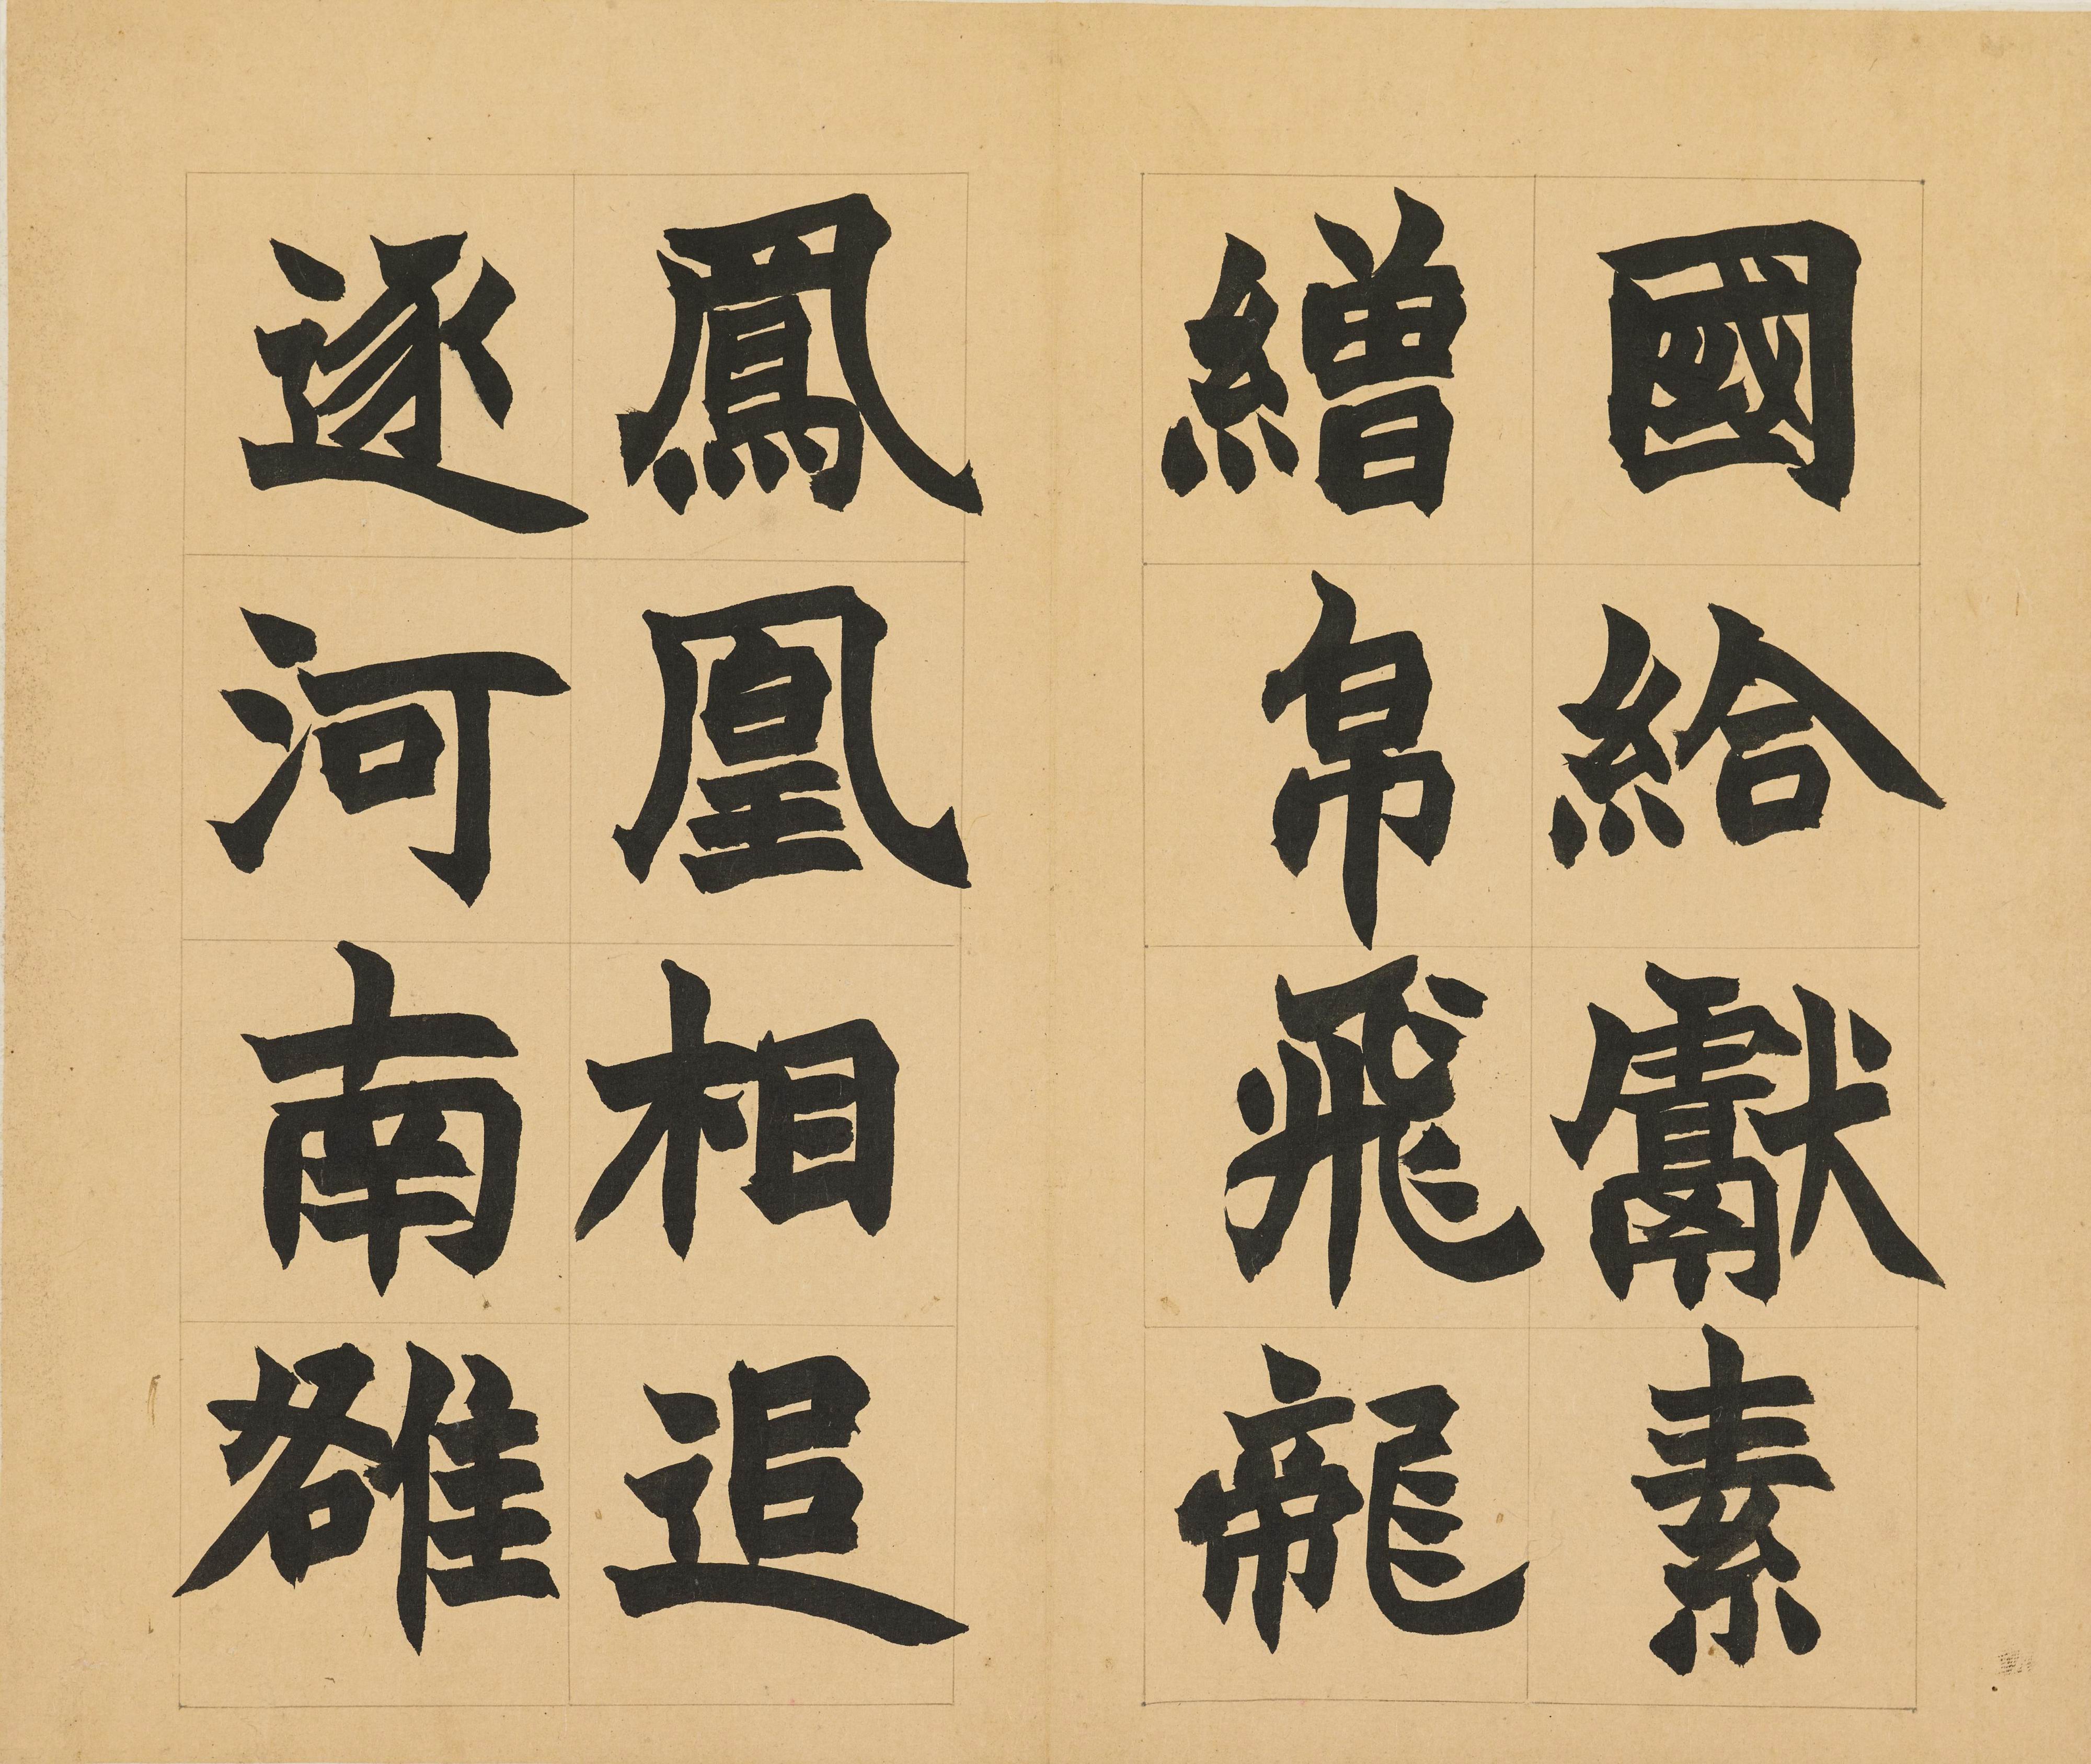 國給獻素
繒帛飛龍
鳳凰相追
逐河南雒